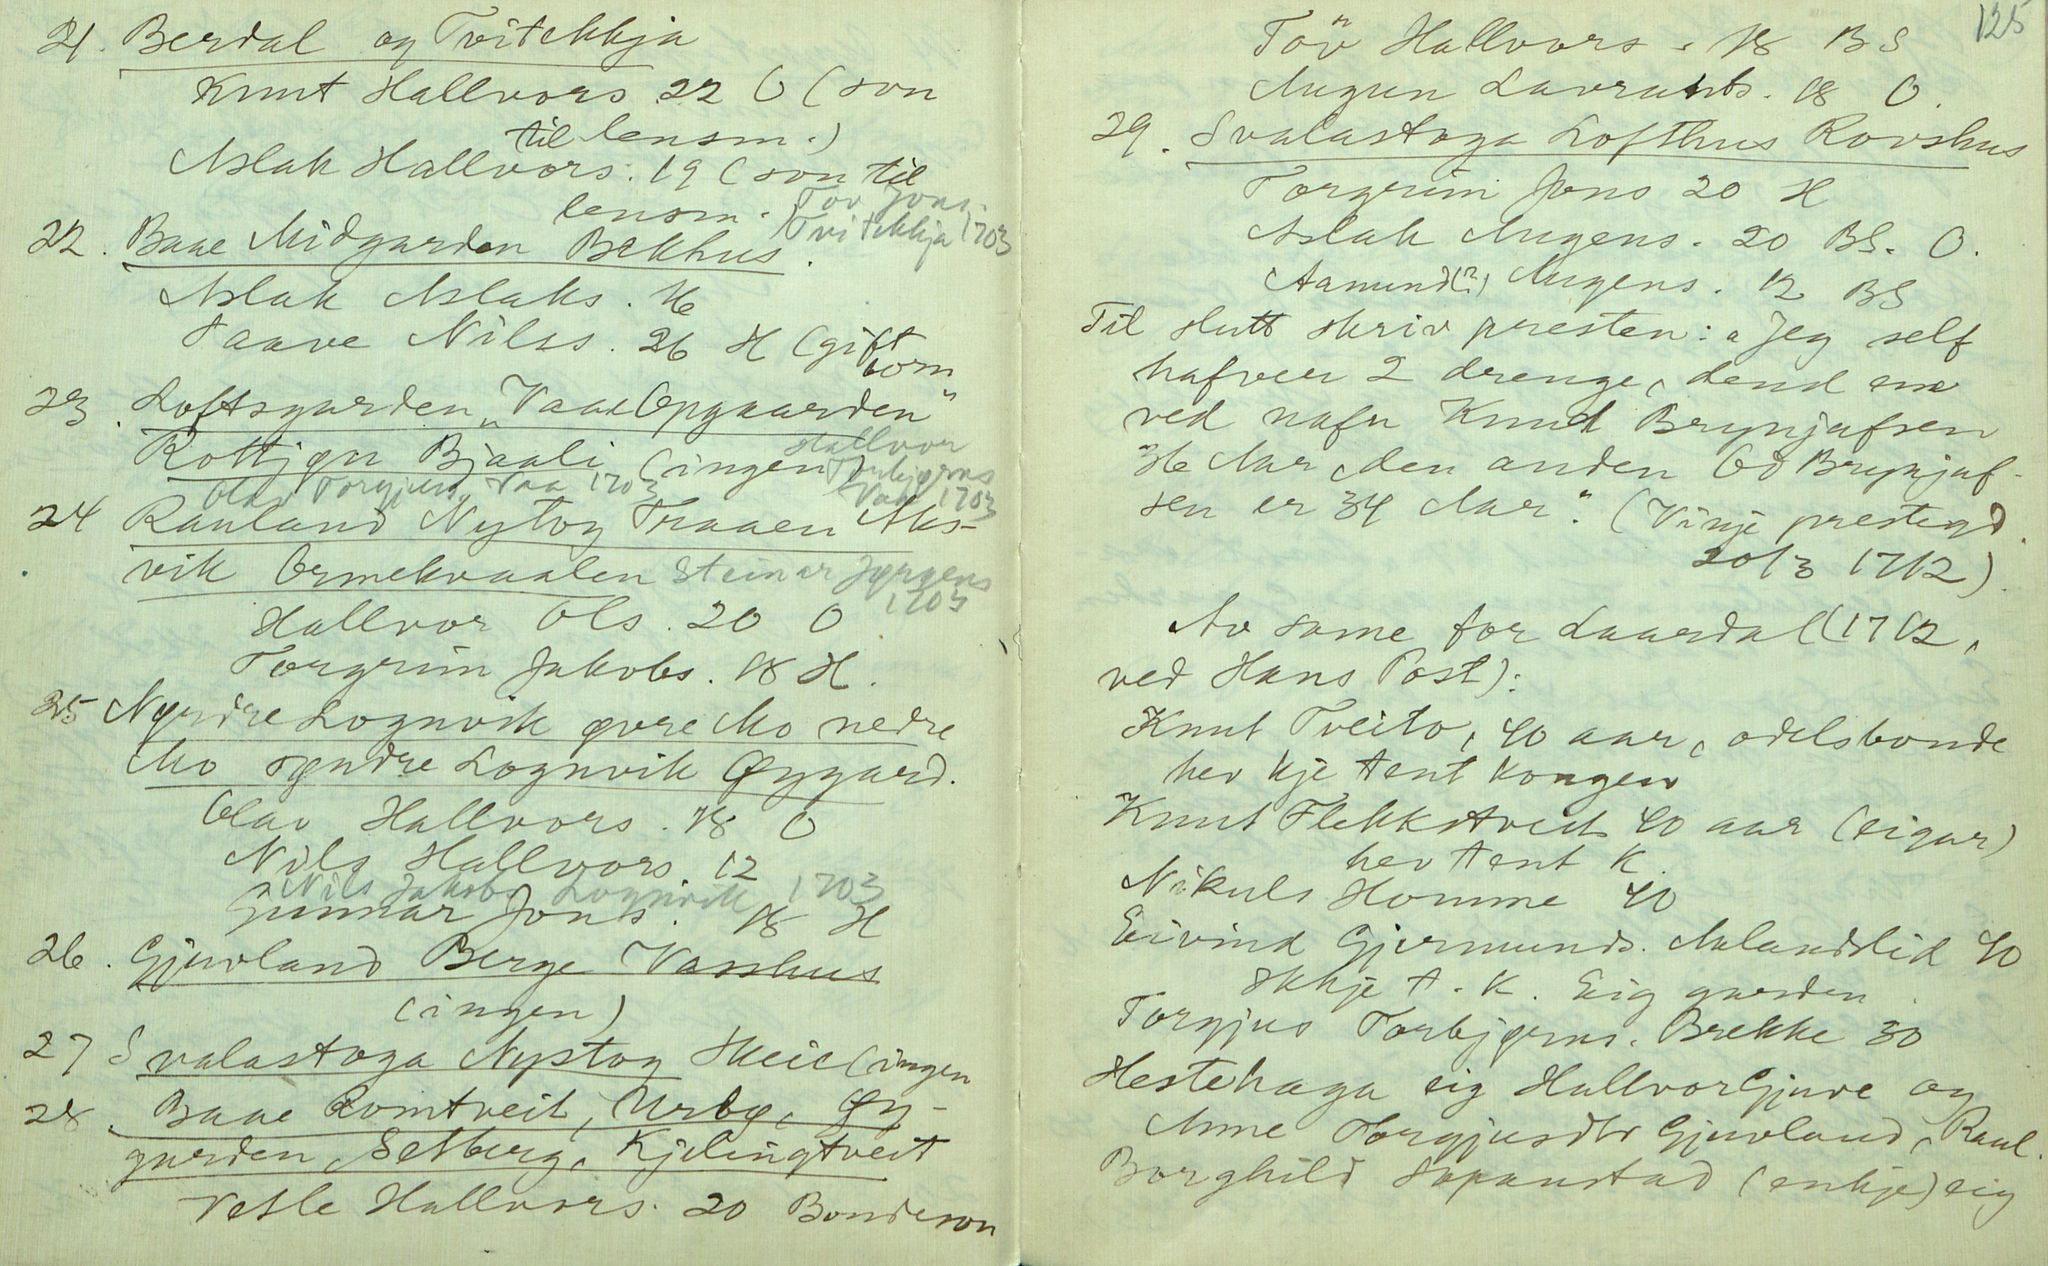 21. Berdal og Tvitekkja
Knut Hallvors 22 O (son
til lensm.)
Aslak Hallvors. 19 (son til
lensm.
Tov Jons.
Tvitekkja 1703
22. Baae Midgarden Bekhus.
Aslak Aslaks. 16
Saave Nilss. 26 H (gift
som
23. Loftsgarden "Vaae Opgaarden"
Rottjøn Bjaali (ingen)
Hallvor
Torbjørns
Vaa 1703
Olav Torgjus. Vaa 1703
24 Rauland Nystog Traaen Aks-
vik Ormekvaalen Steinar Jørgens
1703
Hallvor Ols. 20 O
Torgrim Jakobs. 18 H.
25 Nørdre Lognvik øvre Mo nedre
Mo søndre Lognvik Øygard.
Olav Hallvors. 18 O
Nils Hallvors. 12
Nils Jakobs Lognvik 1703
Gunnar Jons. 18 H
26. Gjuvland Berge Vasshus
(ingen)
27 Svalastoga Nystog Skeie (ingen
28. Baae Romtveit, Urbø, Øy-
garden, Selberg, Kjelingtveit
Vetle Hallvors. 20 Bondeson
125
Tov Hallvors. 18 BS
Augun Lavrants. 18 O.
29. Svalastoga Lofthus Rovshus
Torgrim Jons 20 H
Aslak Augens. 20 BS. O.
Aamund(?) Augens. 12 BS
Til slutt skriv presten: "Jeg self
hafver 2 drenge, dend ene
ved nafn Knud Brynjufsen
36 Aar, den anden Od Brynjuf-
sen er 34 Aar". (Vinje prestegd.
20/3 1712).
Av same for Laardal (1712,
ved Hans Post):
Knut Tveito, 40 aar, odelsbonde
hev kje tent kongen
Knut Flekkstveit 40 aar (eigar)
hev tent K.
Nikuls Homme 40
Eivind Gjermunds. Aalandslid 40
Ikkje t. K. Eig garden.
Torgjus Torbjørns. Brekke 30
Hestehaga eig Hallvor Gjuve og
Anne Torgjusdtr Gjuvland, Raul.
Borghild Sopanstad (enkje) eig